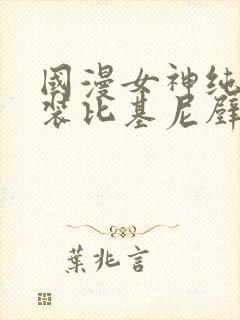 國漫女神纯
装比基尼壁
葉兆言